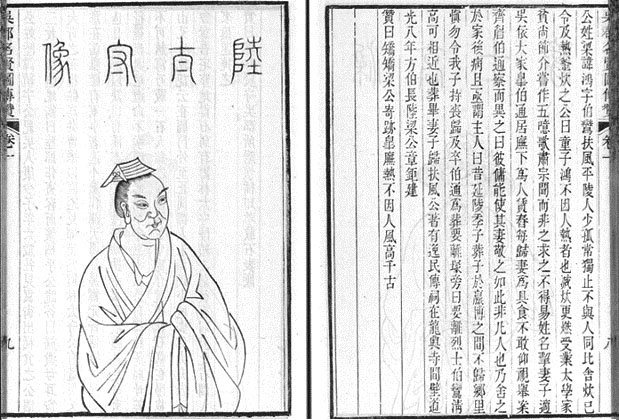 吳郡名賢圖傳贊 卷一 八
公姓梁諱鴻字伯鸞扶風平陵人少孤常獨止不與人同比舍炊已
令及熱釜炊之公曰童子鴻不因人熱者也滅炊更燃受業太學家
貧尚節介嘗作五噫歌肅宗聞而非之求之不得易姓名挈妻子適
吳依大家臯伯通居廡下爲人賃舂每歸妻爲具食不敢仰視舉案
齊眉伯通察而異之曰彼傭能使其妻敬之如此非凡人也乃舍之
於家後病且亟謂主人曰昔延陵季子葬子於嬴博之間不歸鄉里
慎勿令我子持喪歸及卒伯通爲葬要離塚旁曰要離烈士伯鸞淸
高可相近也葬畢妻子歸扶風公著有逸民傳祠在龍興寺間壁道
光八年方伯長陵梁公章鉅建
贊曰矯矯梁公寄跡臯廡熱不因人風高千古
陸太守像
吳郡名賢圖傳贊 卷一 九